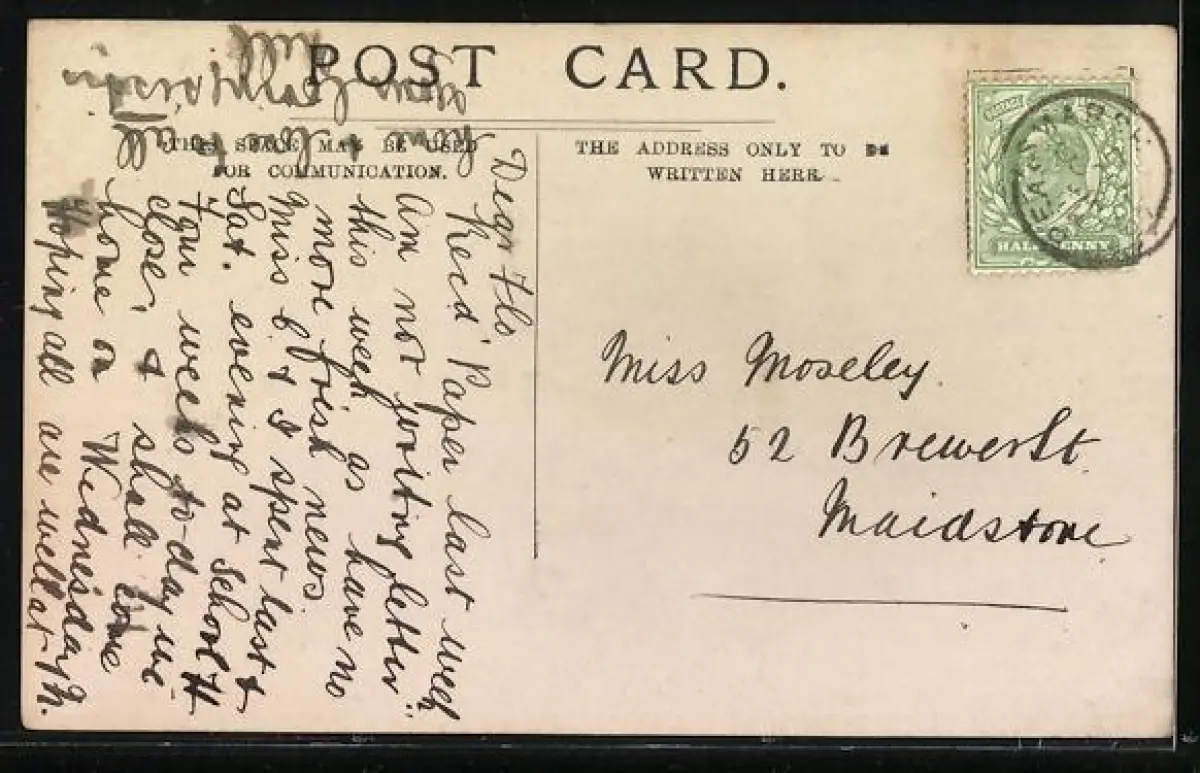 POST CARD.
THIS SPACE MAY BE USED
FOR COMMUNICATION.
THE ADDRESS ONLY TO BE
WRITTEN HERE.
HALFPENNY
Miss Moseley
52 Brewer St.
Maidstone
Dear Flo
Rec'd Paper last week
Am not writing letter
this week as have no
more fresh news
Miss C & I spent last
Sat. evening at School H
four weeks to-day we
close, & shall come
home on Wednesday M.
Hoping all are well at
home & love to all